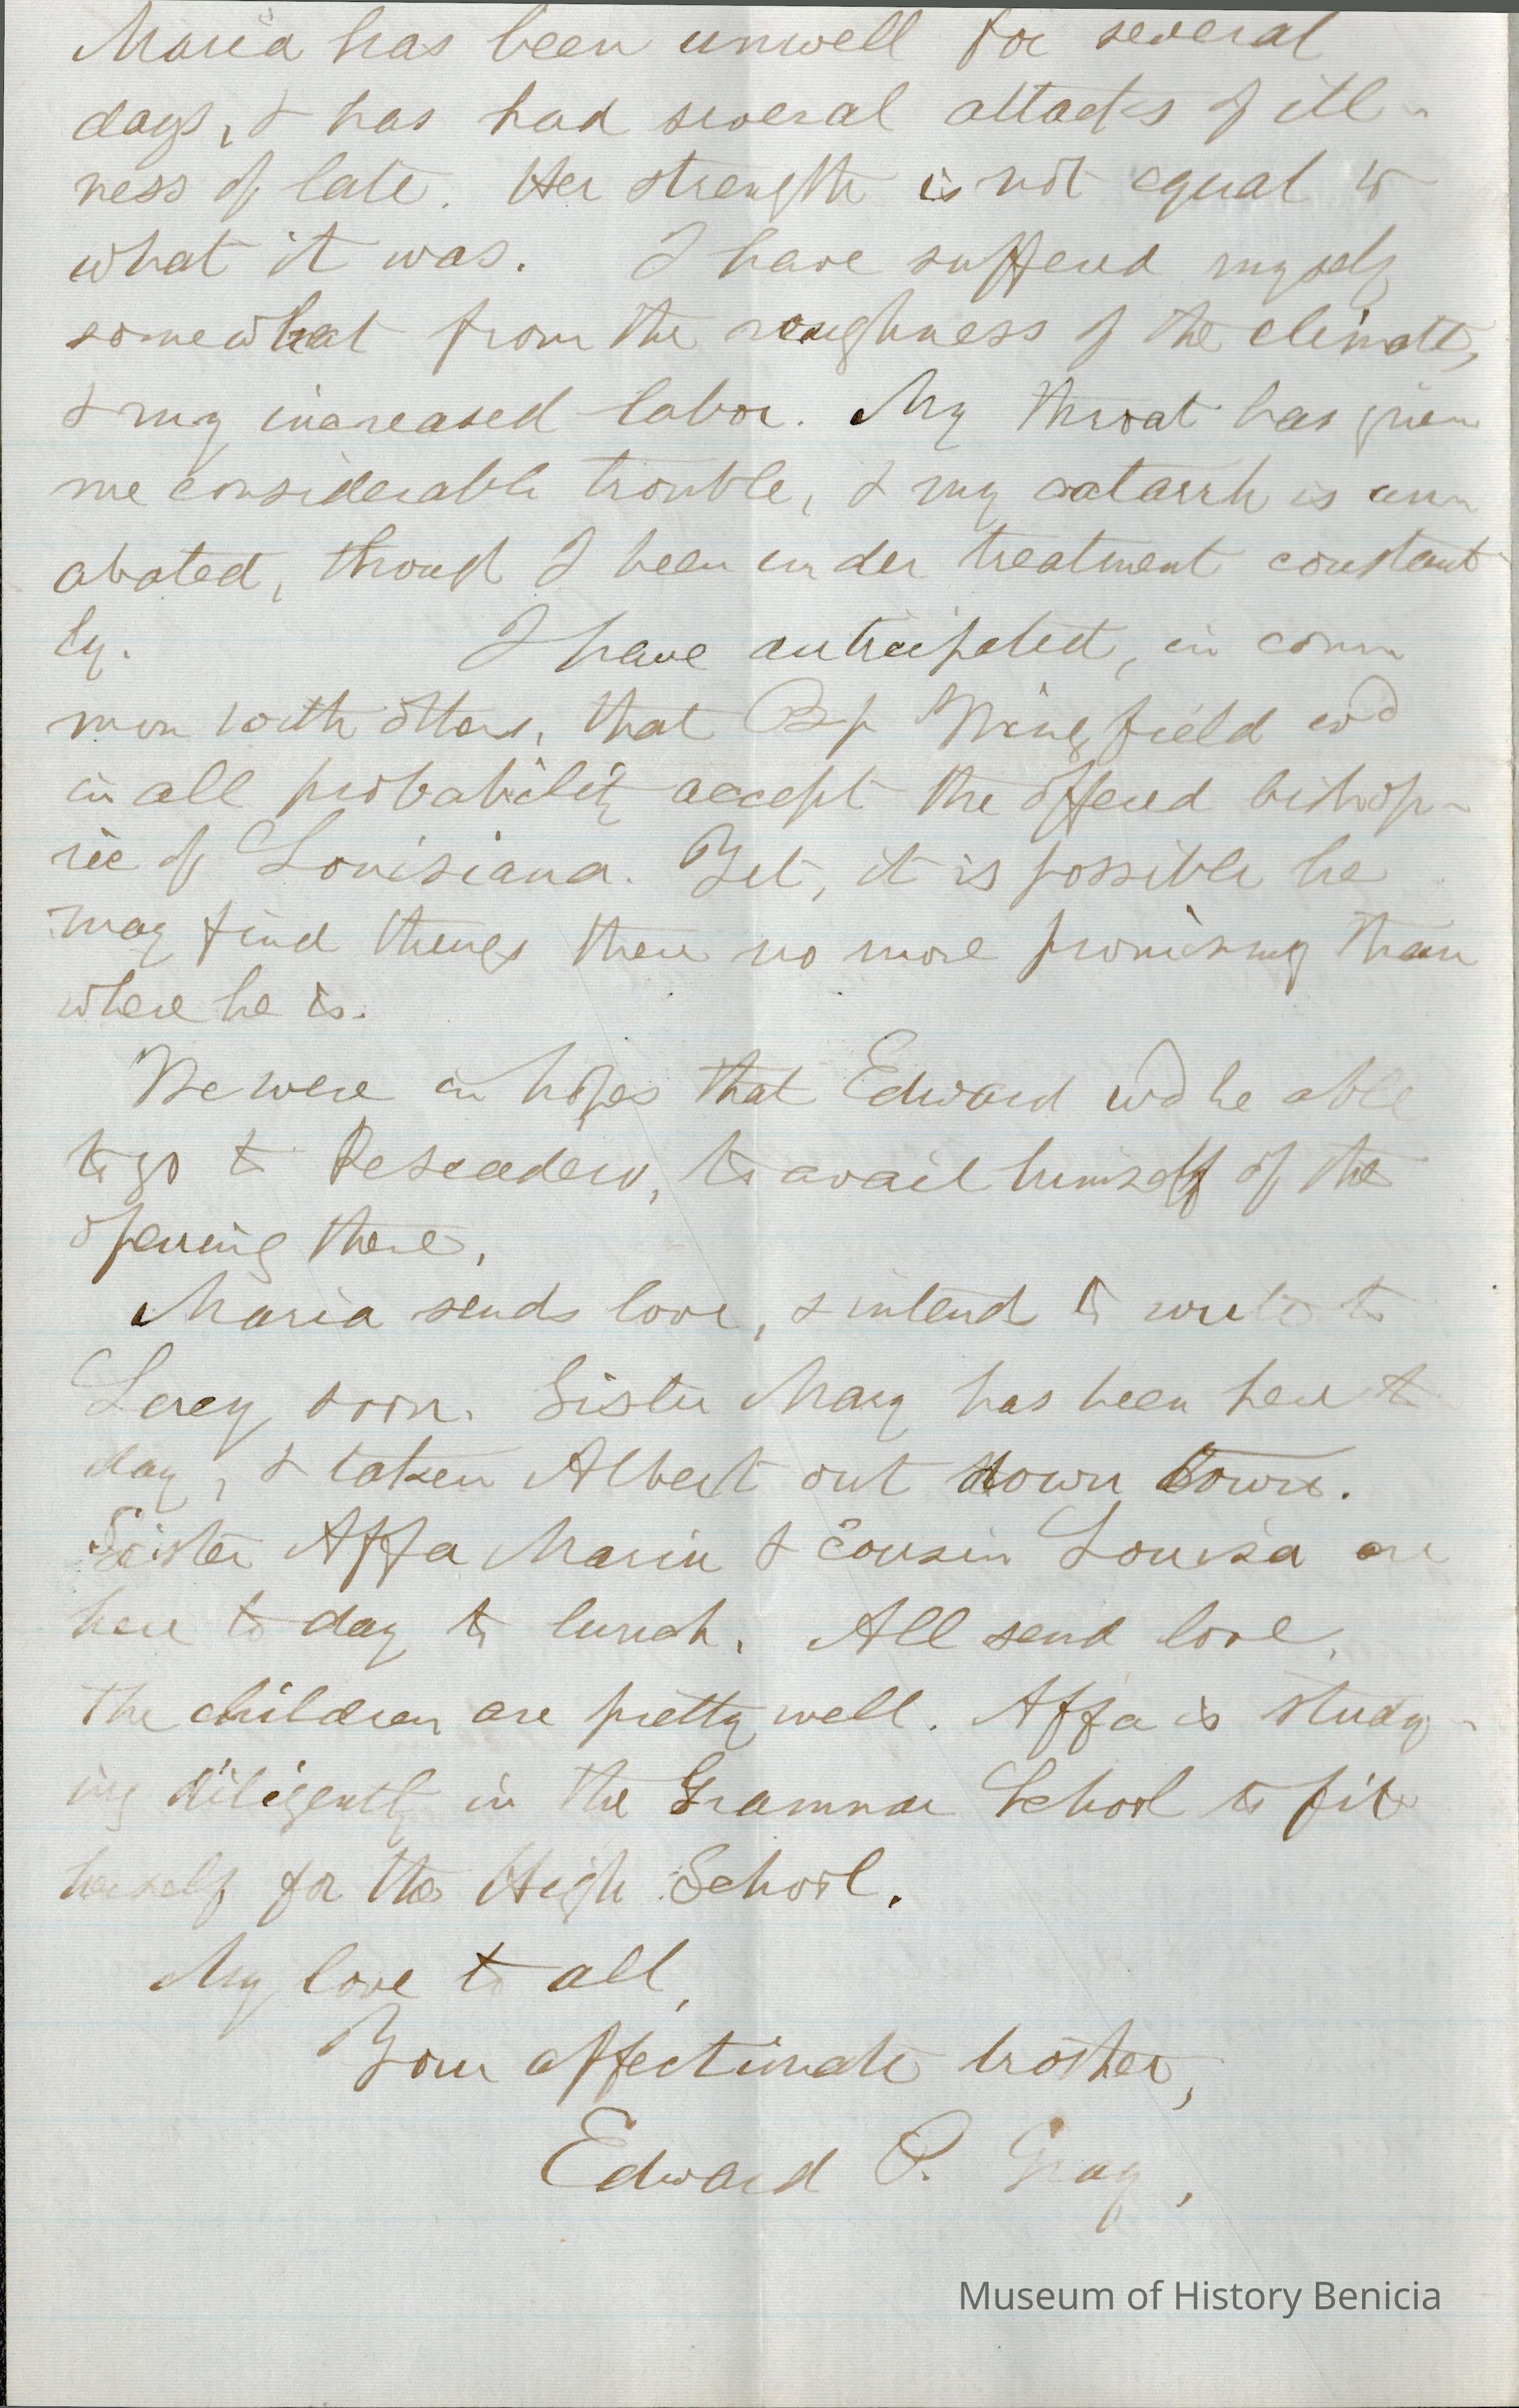 Maria has been unwell for several
days, & has had several attacks of ill-
ness of late. Her strength is not equal to
what it was. I have suffered myself
somewhat from the roughness of the climate,
& my increased labor. My throat has given
me considerable trouble, & my catarrh is un-
abated, though I been under treatment constant-
ly. I have anticipated, in com
mon with others, that Bp Wingfield wd
in all probability accept the offered bishop-
ric of Louisiana. Yet, it is possible he
may find things there no more promising than
where he is.
We were in hopes that Edward wd be able
to go to Pescadero, to avail himself of the
opening there.
Maria sends love, & intend to write to
Lucy soon. Sister Mary has been here to
day, & taken Albert out down town.
Sister Affa Maria & cousin Louisa are
here to day to lunch. All send love.
The children are pretty well. Affa is study-
ing diligently in the Grammar School to fit
herself for the High School.
My love to all,
Your affectionate brother,
Edward P. Gray,
Museum of History Benicia